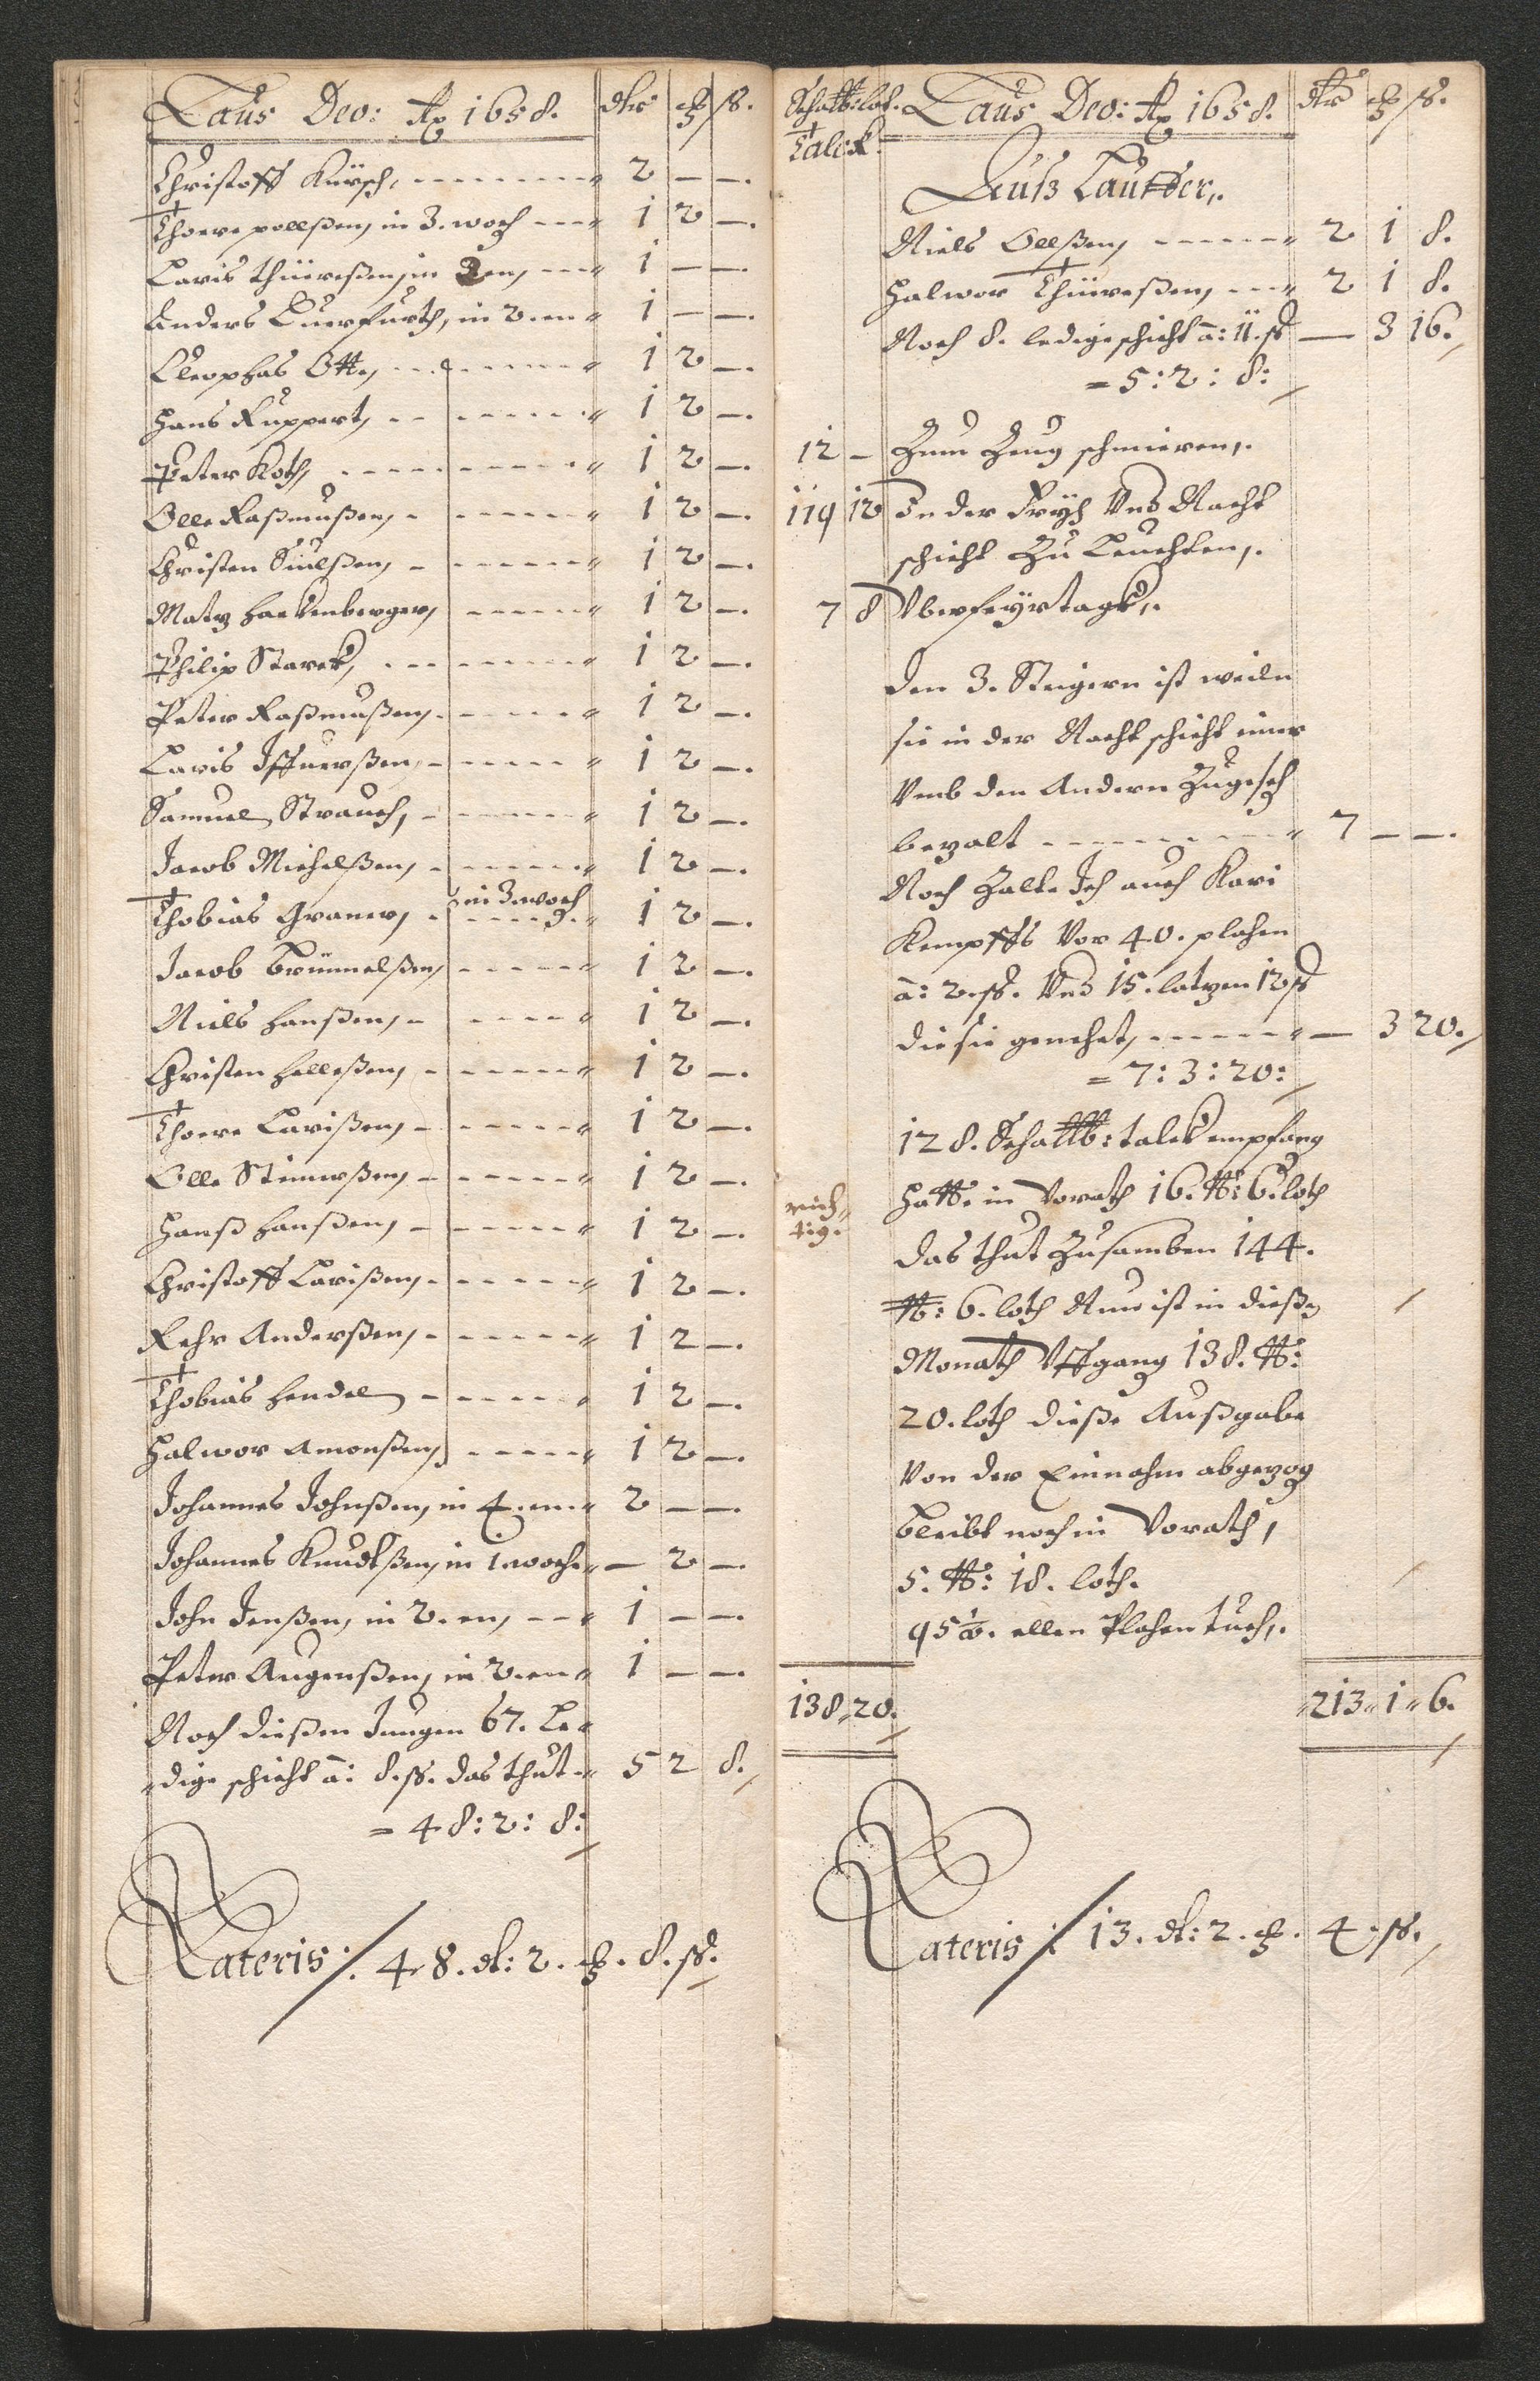 Laus Deo: Ao 1658. dlr ß.
Christoff Kürsch, 2 — —.
Thore pollßen, in 3. woch 1 2 —.
Laris thüereßen, in 2 en, 1 — —.
Anders Querfurth, in 2. en 1 — —.
Cleophas Ott, 1 2 —.
Hans Ruppert, 1 2 —.
Peter Koth, 1 2 —.
Olle Raßmußen, 1 2 —.
Christen Siulßen, 1 2 —.
Matz Hackenberger, 1 2 —.
Philip Starck, 1 2 —.
Peter Raßmußen, 1 2 —.
Laris Iffuerßen, 1 2 —.
Samuel Strauch, 1 2 —.
Jacob Michelßen, 1 2 —.
Thobias Graner, in 3. woch 1 2 —.
Jacob Brünnelßen, 1 2 —.
Niels Hanßen, 1 2 —.
Christen Helleßen, 1 2 —.
Thore Larißen, 1 2 —.
Olle Stinerßen, 1 2 —.
Hanß Hanßen, 1 2 —.
Christoff Larißen, 1 2 —.
Rehr Anderßen, 1 2 —.
Thobias Hendel 1 2 —.
Halwor Amonßen, 1 2 —.
Johannes Johnßen, in 4. en 2 — —.
Johannes Knudtßen, in 1. woche — 2 —.
John Jenßen, in 2. en, 1 — —.
Peter Augenßen, in 2. en 1 — —.
Noch dießen Jungen 67. Le-
dige schicht à: 8. ß. das thut 5 2 8.
= 48: 2: 8:
Lateris ⁒ 48. dl: 2. 8. ß.
Schalb: lot. Laus Deo: Ao 1658. dlr ß.
Talck.
Auß Lautder,.
Niels Ollßen, 2 1 8.
Halwor Thüereßen, 2 1 8.
Noch 8. ledige schicht à: 11. ß — 3 16.
= 5: 2: 8:
12 — Zum Zeug schmieren,.
119 12 In der Früh Und Nacht
schicht Zu Leuchten,.
7 8 Uber feyrtage,.
Den 3. Steigern ist weiln
sie in der Nacht schicht einer
Umb den Andern Zugeseh
bezalt 7 — —.
Noch Zalte Ich auch Kari
Kempffs Vor 40. plahen
à: 2. ß. Und 15. latzen 12 ß
die sie genehet, — 3 20.
= 7: 3: 20:
128. Schalb: talck empfang
Hatt in Vorath 16. ℔: 6. loth
rich-
tig.
das thut Zusamben 144.
℔: 6. loth Nun ist in dießen
Monath Uffgang 138. ℔:
20. loth dieße Außgabe
Von der Einnahm abgezog
bleibt noch in Vorath,
5. ℔: 18. loth.
95 ½. ellen Plahen tuch,.
138. 20. 213 " 1 " 6.
Lateris ⁒ 13. dl: 2. 4. ß.